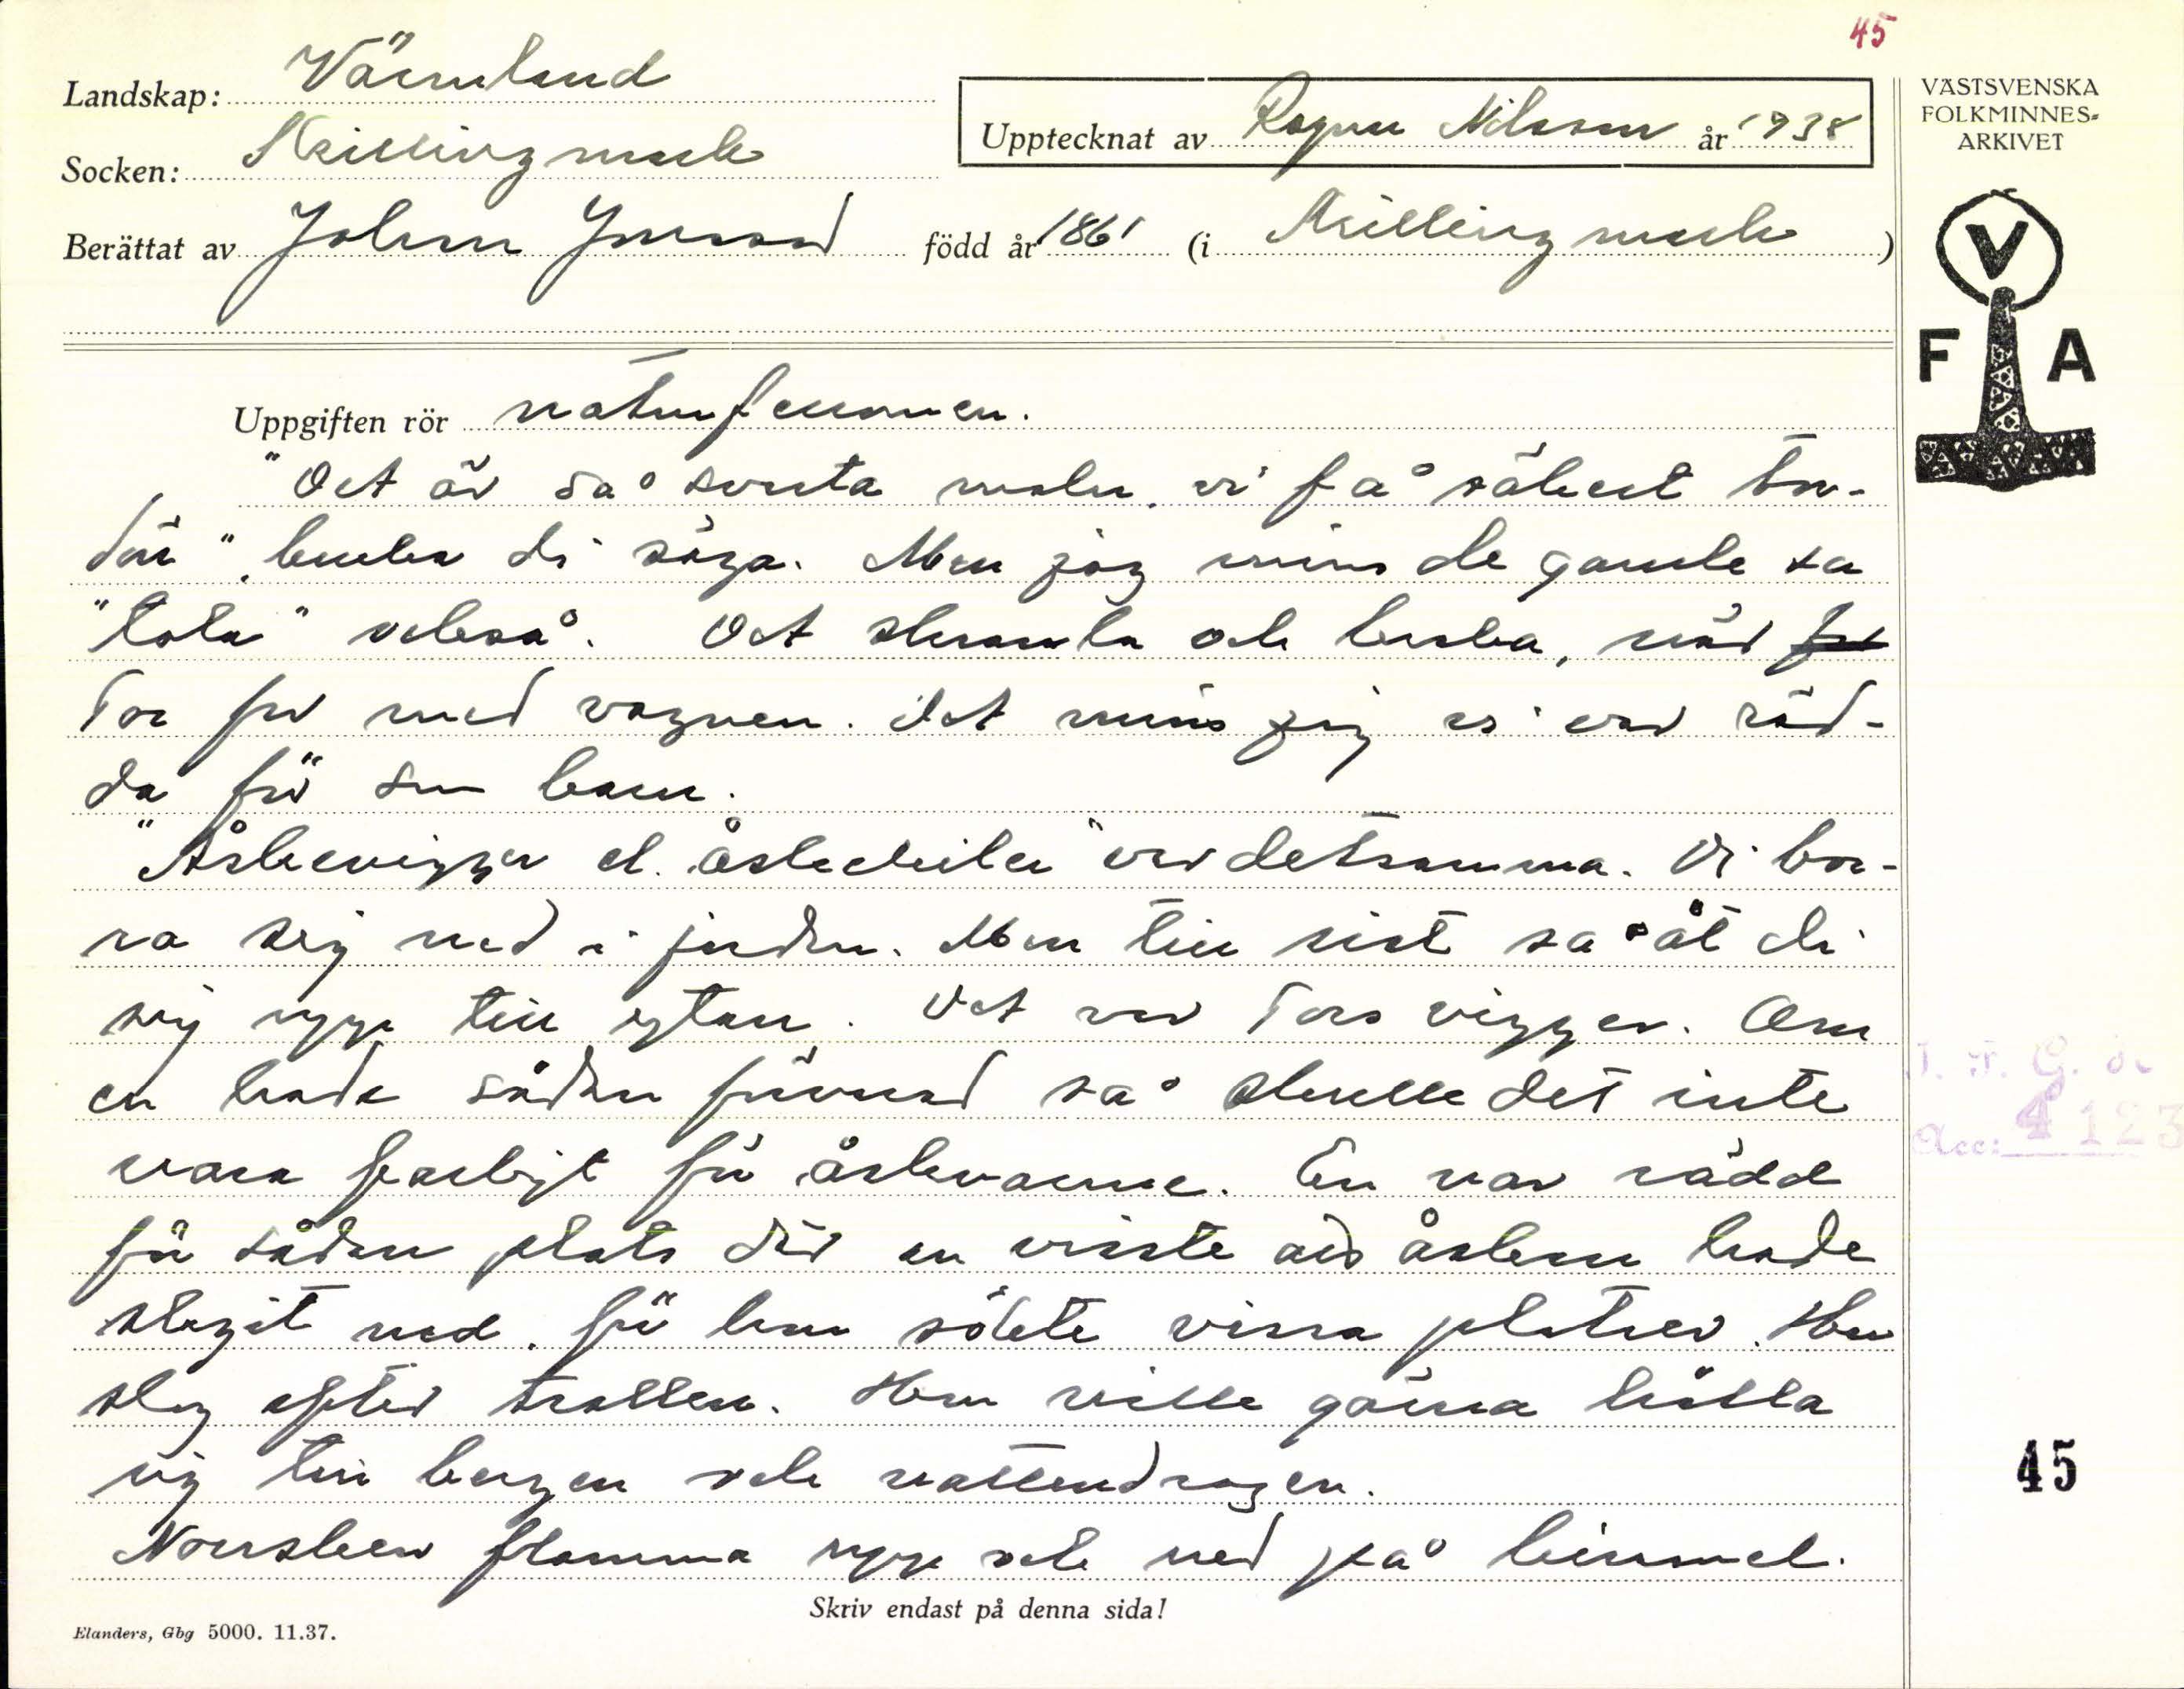 45
Landskap: Värmland
Socken: Skillingmark
Upptecknat av Ragnar Nilsson år 1938
Berättat av Johan Jonsson född år 1861 (i Skillingmark)
VÄSTSVENSKA
FOLKMINNES-
ARKIVET
V
F A
Uppgiften rör naturfenomen.
"Det är så svarta moln, vi få säkert tor-
dön", bruka di säga. Men jag minns de gamle sa
"tola" också. Det skramla och braka, när
Tor for med vagnen. Det minns jag vi var räd-
da för som barn.
"Åskevigger el. åskekiler" var detsamma. Di bor-
ra sig ned i jorden. Men till sist så åt di
sig upp till ytan. Det var Tors vigger. Om
en hade sådan förvarad så skulle det inte
vara farligt för åskevarme. En var rädd
för sådan plats där en visste att åsken hade
slagit ned, för han sökte vissa platser. Han
slog efter trollen. Han ville gärna hålla
sig till bergen och vattendragen.
Norrsken flamma upp och ned på himmel.
Skriv endast på denna sida!
Elanders, Gbg 5000. 11.37.
Acc: 4123
45